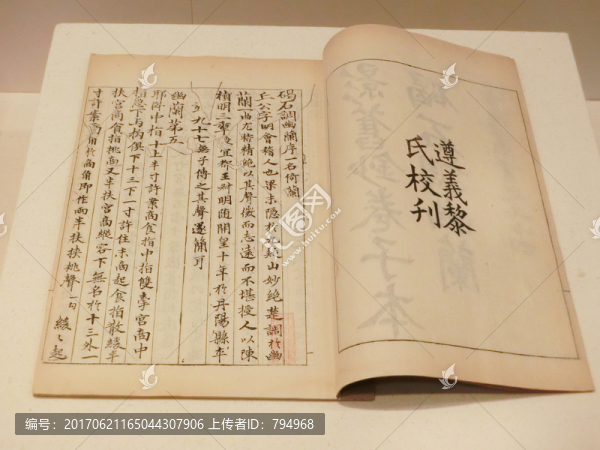 遵義黎
氏校刊
碣石調幽蘭序一名倚蘭
丘公字明會稽人也梁末隱於九疑山妙絕楚調於幽
蘭一曲尤特精絕以其聲微而志遠而不堪授人以陳
禎明三年授宜都王叔明隨開皇十年於丹陽縣卒
九十七無子傳之其聲遂簡耳
幽蘭第五
耶臥中指十上半寸許案商食指中指雙牽宮商中
指急下與拘俱下十三下一寸許住末商起食指散緩半
扶宮商食指挑商又半扶宮商縱容下無名於十三外一
寸許案商角於商角即作兩半扶挾挑聲一句
緩緩起
编号：20170621165044307906 上传者ID：794968